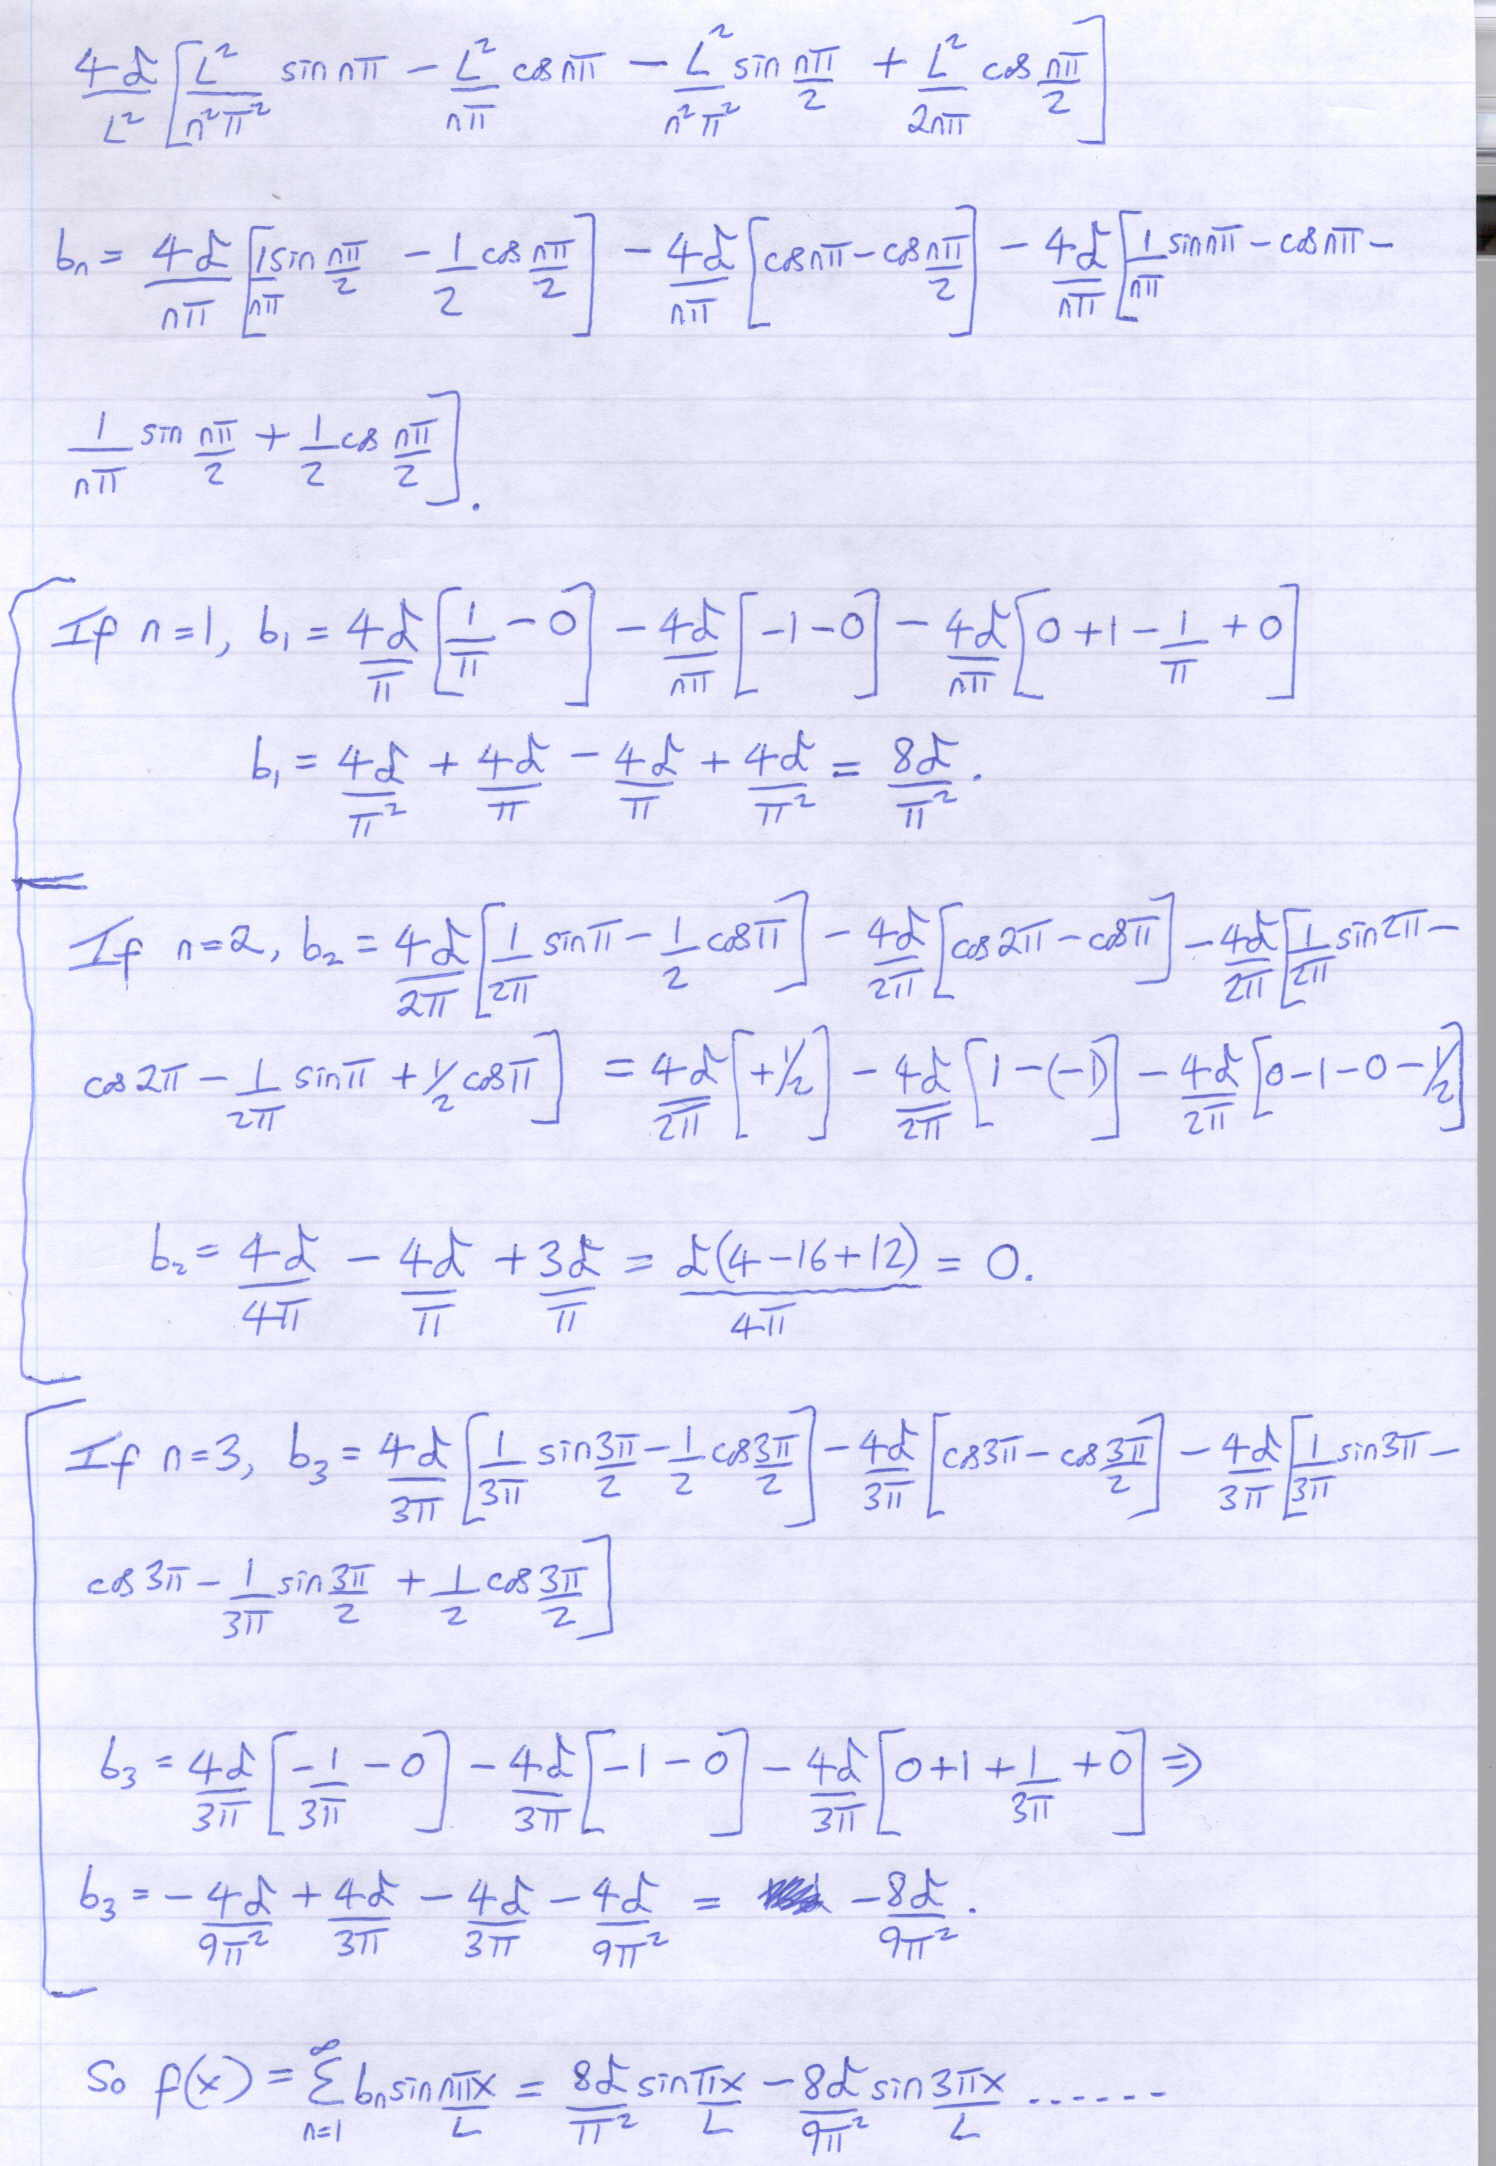 4α/L² [L²/n²π² sin nπ − L²/nπ cos nπ − L²/n²π² sin nπ/2 + L²/2nπ cos nπ/2]
bₙ = 4α/nπ [1/nπ sin nπ/2 − 1/2 cos nπ/2] − 4α/nπ [cos nπ − cos nπ/2] − 4α/nπ [1/nπ sin nπ − cos nπ −
1/nπ sin nπ/2 + 1/2 cos nπ/2].
If n=1, b₁ = 4α/π [1/π − 0] − 4α/nπ [−1−0] − 4α/nπ [0+1−1/π+0]
b₁ = 4α/π² + 4α/π − 4α/π + 4α/π² = 8α/π².
If n=2, b₂ = 4α/2π [1/2π sin π − 1/2 cos π] − 4α/2π [cos 2π − cos π] − 4α/2π [1/2π sin 2π −
cos 2π − 1/2π sin π + 1/2 cos π] = 4α/2π [+1/2] − 4α/2π [1−(−1)] − 4α/2π [0−1−0−1/2]
b₂ = 4α/4π − 4α/π + 3α/π = α(4−16+12)/4π = 0.
If n=3, b₃ = 4α/3π [1/3π sin 3π/2 − 1/2 cos 3π/2] − 4α/3π [cos 3π − cos 3π/2] − 4α/3π [1/3π sin 3π −
cos 3π − 1/3π sin 3π/2 + 1/2 cos 3π/2]
b₃ = 4α/3π [−1/3π − 0] − 4α/3π [−1−0] − 4α/3π [0+1+1/3π+0] ⇒
b₃ = −4α/9π² + 4α/3π − 4α/3π − 4α/9π² = −8α/9π².
So f(x) = ∞Σn=1 bₙ sin nπx/L = 8α/π² sin πx/L − 8α/9π² sin 3πx/L ......